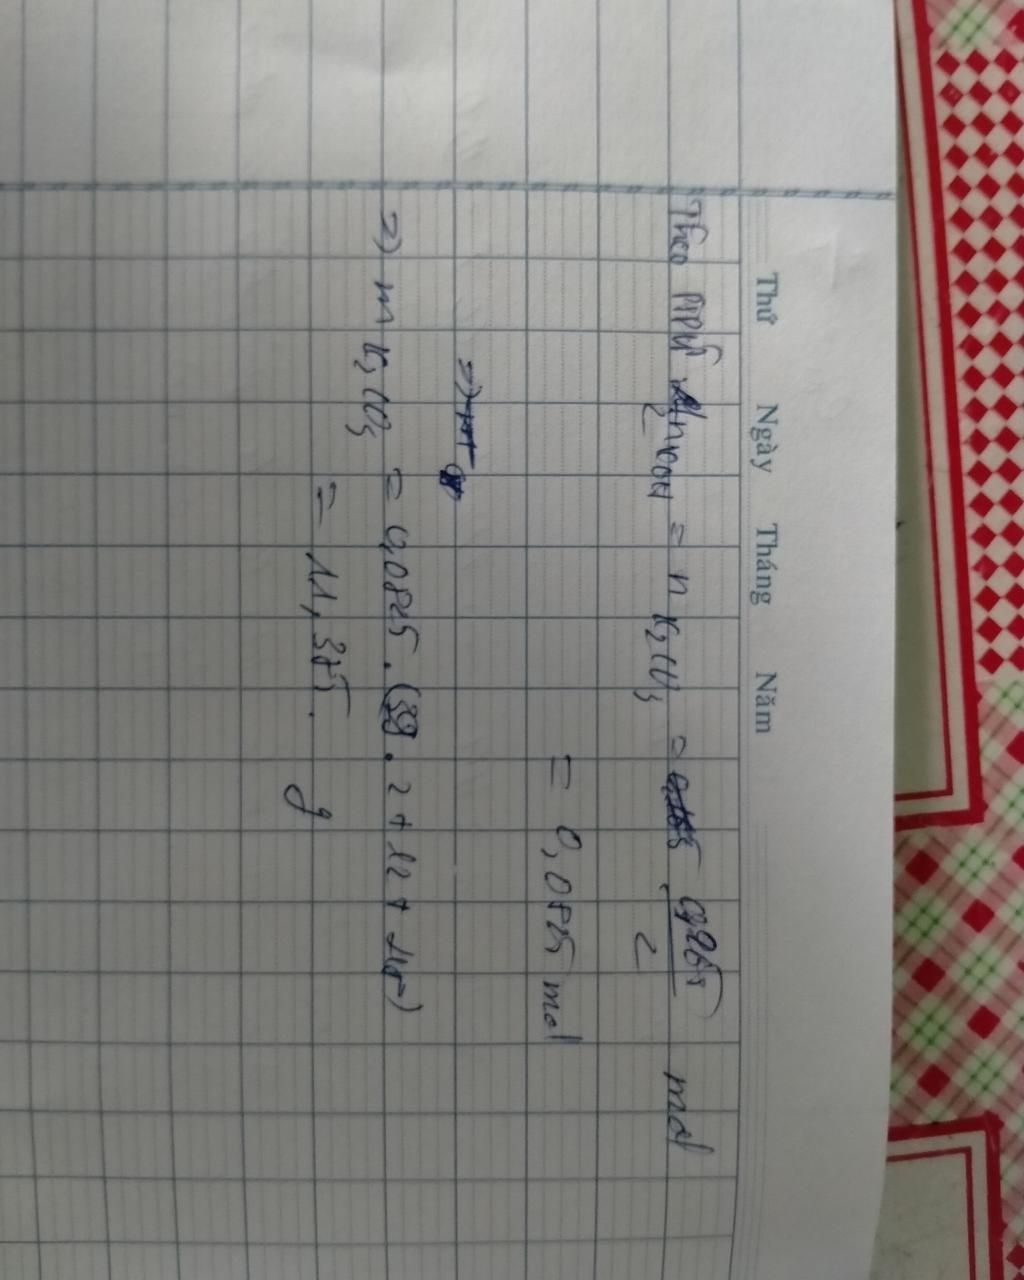 Thứ Ngày Tháng Năm
Theo PTPƯ n = n K2CO3 = 0,165 mol
2 2
= 0,0825 mol
=)
=) m K2CO3 = 0,0825 . (39 . 2 + 12 + 48)
= 11,385 g